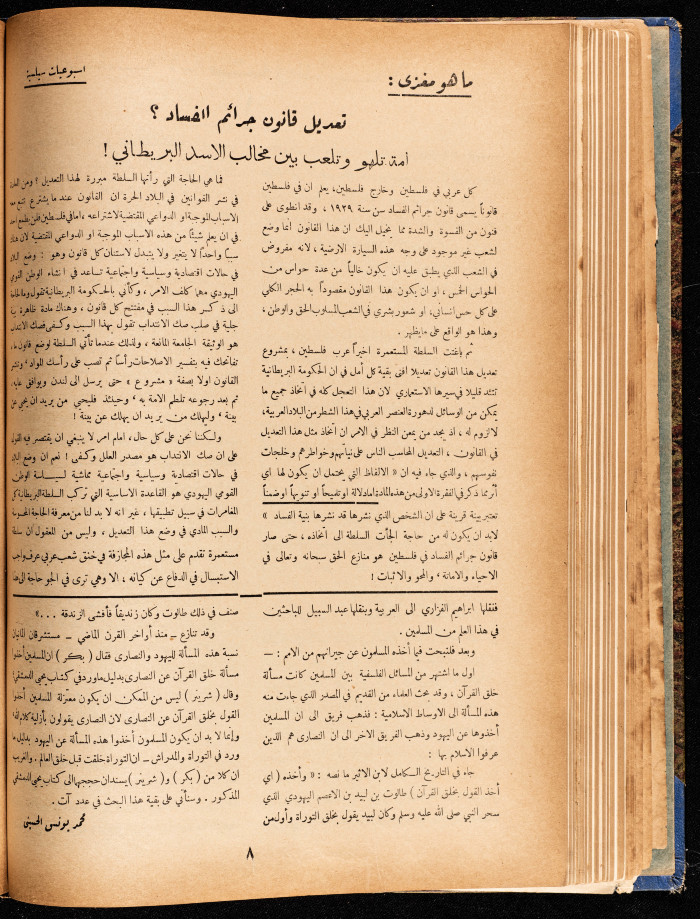 ما هو مغزى :
اسبوعيات سياسية
تعديل قانون جرائم الفساد ؟
أمة تلهو وتلعب بين مخالب الاسد البريطاني !
كل عربي في فلسطين وخارج فلسطين، يعلم ان في فلسطين
قانوناً يسمى قانون جرائم الفساد سن سنة ١٩٢٩ ، وقد انطوى على
فنون من القسوة والشدة مما يخيل اليك ان هذا القانون انما وضع
لشعب غير موجود على وجه هذه السيارة الارضية ، لانه مفروض
في الشعب الذي يطبق عليه ان يكون خالياً من عدة حواس من
الحواس الخمس ، او ان يكون هذا القانون مقصوداً به الحجر الكلي
على كل حس انساني، او شعور بشري في الشعب المسلوب الحق والوطن ،
وهذا هو الواقع على مايظهر .
ثم باغتت السلطة المستعمرة اخيراً عرب فلسطين ، بمشروع
تعديل هذا القانون تعديلا افنى بقية كل أمل في ان الحكومة البريطانية
تتئد قليلا في سيرها الاستعماري لان هذا التعجل كله في اتخاذ جميع ما
يمكن من الوسائل لدهورة العنصر العربي في هذا الشطر من البلاد العربية،
لالزوم له ، اذ يجد من يمعن النظر في الامر ان اتخاذ مثل هذا التعديل
في القانون ، التعديل المحاسب الناس على نياتهم وخواطرهم وخلجات
نفوسهم ، والذي جاء فيه ان « الالفاظ التي يحتمل ان يكون لها اي
أثر مما ذكر في الفقرة الاولى من هذه المادة اما دلالة او تلميحاً او تنويهاً او ضمناً
تعتبر بينة قرينة على ان الشخص الذي نشرها قد نشرها بنية الفساد »
لابد ان يكون له من حاجة الجأت السلطة الى اتخاذه ، حتى صار
قانون جرائم الفساد في فلسطين هو منازع الحق سبحانه وتعالى في
الاحياء والاماتة ، والمحو والاثبات !
فما هي الحاجة التي رأتها السلطة مبررة لهذا التعديل ؟ ومن
في نشر القوانين في البلاد الحرة ان القانون عند ما يشترع تتبع معه
الاسباب الموجبة او الدواعي المقتضية لاشتراعه ، اما في فلسطين فلن يطمع احد
في ان يعلم شيئاً من هذه الاسباب الموجبة او الدواعي المقتضية لان هناك
سبباً واحداً لا يتغير ولا يتبدل لاستنان كل قانون وهو : وضع البلاد
في حالات اقتصادية وسياسية واجتماعية تساعد في انشاء الوطن القومي
اليهودي مهما كلف الامر ، وكأني بالحكومة البريطانية تقول وما الحاجة
الى ذكر هذا السبب في مفتتح كل قانون ، وهناك مادة ظاهرة بينة
جلية في صلب صك الانتداب تقول بهذا السبب وكفى فصك الانتداب
هو الوثيقة الجامعة المانعة ، ولذلك عندما تأتي السلطة لوضع قانون ما،
تفاتحك فيه بتفسير الاصلاحات رأساً ثم تصب على رأسك المواد ، وتنشر
القانون اولا بصفة « مشروع » حتى يرسل الى لندن ويوافق عليه،
ثم بعد رجوعه تلطم الامة به ، وحينئذ فليحي من يريد ان يحي عن
بينة ، وليهلك من يريد ان يهلك عن بينة !
ولكننا نحن على كل حال، امام امر لا ينبغي ان يقتصر فيه القول
على ان صك الانتداب هو مصدر العلل وكفى ! نعم ان وضع البلاد
في حالات اقتصادية وسياسية واجتماعية مماشية لسياسة الوطن
القومي اليهودي هو القاعدة الاساسية التي تركب السلطة البريطانية كل
المغامرات في سبيل تطبيقها ، غير انه لا بد لنا من معرفة الحاجة المحسوسة
والسبب المادي في وضع هذا التعديل ، وليس من المعقول ان سلطة
مستعمرة تقدم على مثل هذه المجازفة في خنق شعب عربي عرف واجب
الاستبسال في الدفاع عن كيانه ، الا وهي ترى في الجو حاجة الى هذا
فنقلها ابراهيم الفزاري الى العربية وبنقلها عبد السبيل للباحثين
في هذا العلم من المسلمين .
وبعد فلنبحث فيما أخذه المسلمون عن جيرانهم من الامم : —
اول ما اشتهر من المسائل الفلسفية بين المسلمين كانت مسألة
خلق القرآن ، وقد بحث العلماء من القديم في المصدر الذي جاءت منه
هذه المسألة الى الاوساط الاسلامية : فذهب فريق الى ان المسلمين
أخذوها عن اليهود وذهب الفريق الاخر الى ان النصارى هم الذين
عرفوا الاسلام بها :
جاء في التاريخ الكامل لابن الاثير ما نصه : « وأخذه ( اي
أخذ القول بخلق القرآن ) طالوت بن لبيد بن الاعصم اليهودي الذي
سحر النبي صلى الله عليه وسلم وكان لبيد يقول بخلق التوراة وأول من
صنف في ذلك طالوت وكان زنديقاً فأفشى الزندقة ... »
وقد تنازع — منذ أواخر القرن الماضي — مستشرقان المانيان
نسبة هذه المسألة لليهود والنصارى فقال ( بكر ) ان المسلمين أخذوا
مسألة خلق القرآن عن النصارى بدليل ماورد في كتاب يحي للدمشقي
وقال ( شرينر ) ليس من الممكن ان يكون معتزلة المسلمين أخذوا
القول بخلق القرآن عن النصارى لان النصارى يقولون بأزلية كلام الله
وإنما لا بد ان يكون المسلمون أخذوا هذه المسألة عن اليهود بدليل ما
ورد في التوراة والمدراش — ان التوراة خلقت قبل خلق العالم . والغريب
ان كلا من ( بكر ) و( شرينر ) يسندان حججها الى كتاب يحي الدمشقي
المذكور . وسنأتي على بقية هذا البحث في عدد آت .
محمد يونس الحسيني
٨